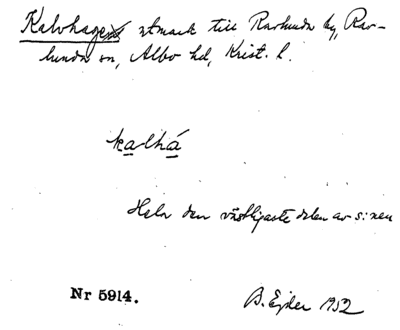 Kalvhagen utmark till Ravlunda by, Rav-
lunda sn, Albo hd, Krist. l.
kalhá
Hela den västligaste delen av s:nen
Nr 5914.
B. Ejder 1952